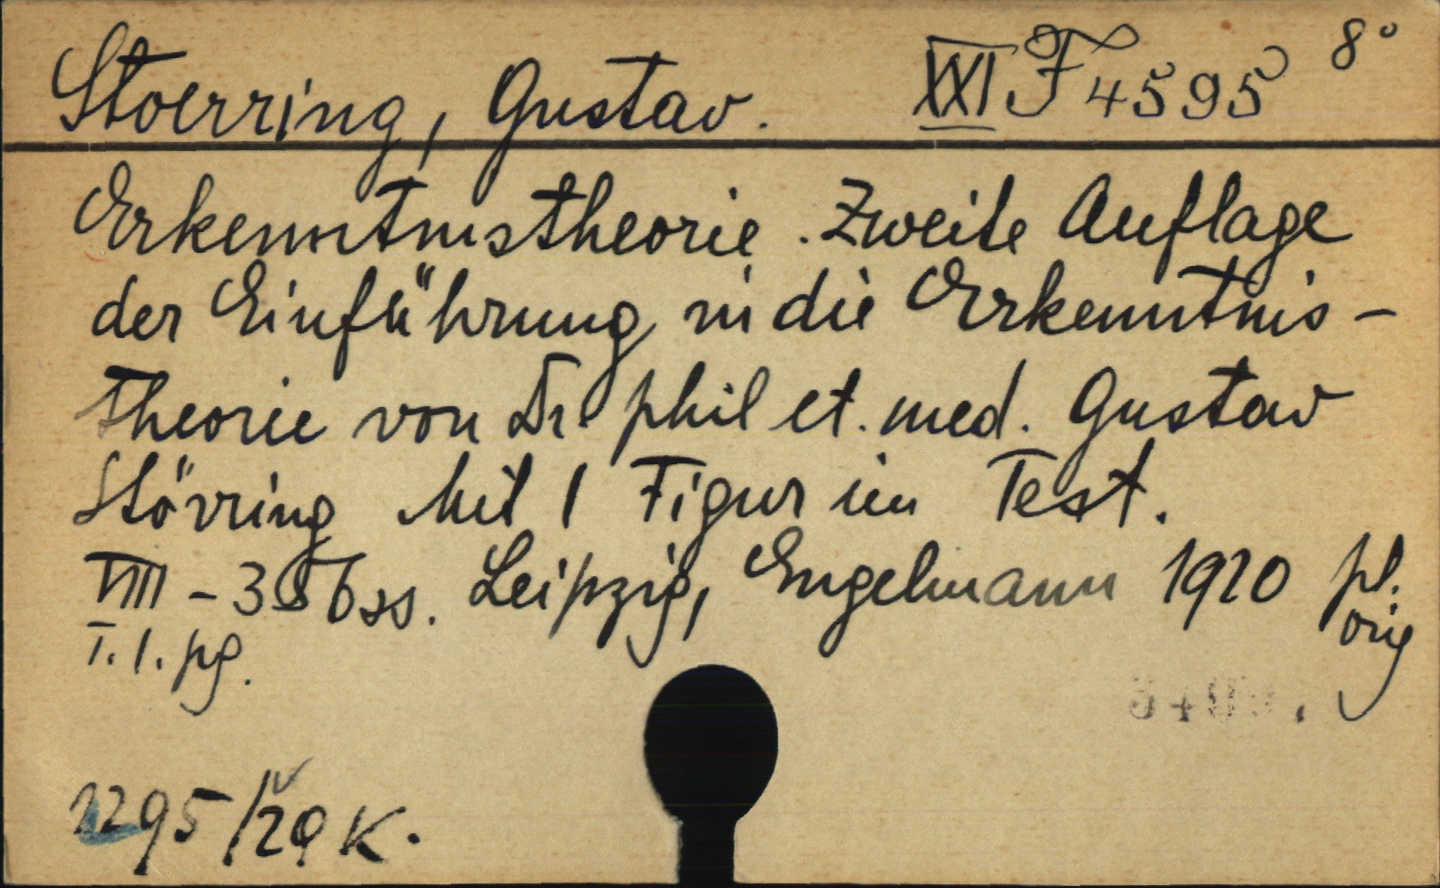 Stoerring, Gustav. XXI F 4595 8°
Erkenntnistheorie. Zweite Auflage
der Einführung in die Erkenntnis-
theorie von Dr phil et. med. Gustav
Störring Mit 1 Figur im Text.
VIII - 356 ss. Leipzig, Engelmann 1920 pł.
T. 1. pg. orig
1295/29 K.